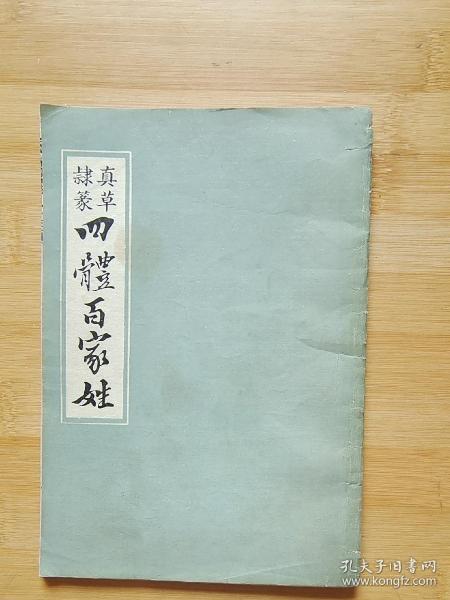 真草
隷篆
四體百家姓
孔夫子旧书网
www.kongfz.com